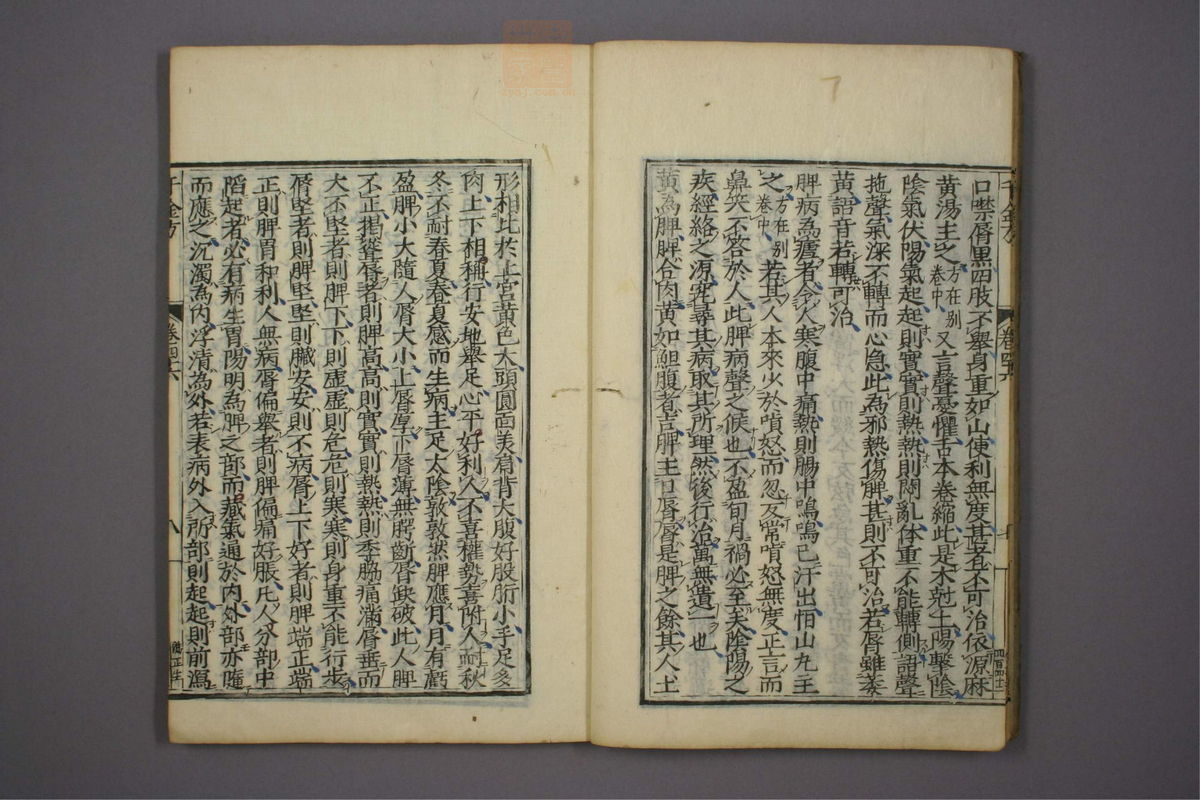 口噤脣黑四肢不舉身重如山便利無度甚者不可治依源麻
黃湯主之方在別卷中又言聲憂懼舌本卷縮此是木尅土陽擊陰
陰氣伏陽氣起起則實實則熱熱則悶亂体重不能轉側語聲
拖聲氣深不轉而心急此為邪熱傷脾甚則不可治若脣雖萎
黃語音若轉可治
脾病為瘧者令人寒腹中痛熱則腸中鳴鳴已汗出怕山丸主
之方在別卷中若其人本來少於嗔怒而忽反常嗔怒無度正言而
鼻笑不答於人此脾病聲之候也不盈旬月禍必至矣陰陽之
疾經絡之源究尋其病取其所理然後行治萬無遺一也
黃為脾脾合肉黃如鱓腹者吉脾主口脣脣是脾之餘其人土
形相比於上宮黃色大頭圓面美肩背大腹好股胻小手足多
肉上下相稱行安地舉足心平好利人不喜權勢喜附人耐秋
冬不耐春夏春夏感而生病主足太陰敦敦然脾應月月有虧
盈脾小大隨人脣大小上脣厚下脣薄無腭齗脣缺破此人脾
不正揭聳脣者則脾高高則實實則熱熱則季脇痛滿脣垂而
大不堅者則脾下下則虛虛則危危則寒寒則身重不能行步
脣堅者則脾堅堅則臟安安則不病脣上下好者則脾端正端
正則脾胃和利人無病脣偏舉者則脾偏痛好脹凡人分部中
陷起者必有病生胃陽明為脾之部而藏氣通於內外部亦隨
而應之沉濁為內浮清為外若表病外入所部則起起則前瀉
千金方
卷四十六
八